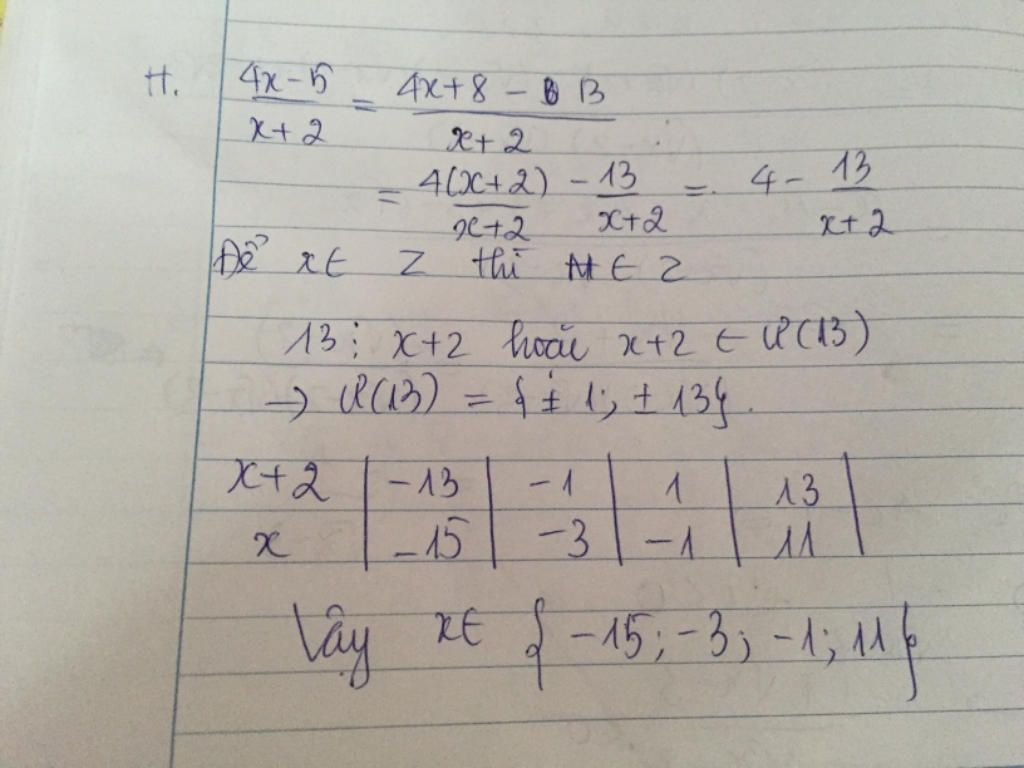 H. \frac{4x-5}{x+2} = \frac{4x+8-13}{x+2}
= \frac{4(x+2)}{x+2} - \frac{13}{x+2} = 4 - \frac{13}{x+2}
Để x ∈ Z thì H ∈ Z
13 ⋮ x+2 hoặc x+2 ∈ Ư(13)
→ Ư(13) = {± 1; ± 13}.
x+2 | -13 | -1 | 1 | 13 |
x | -15 | -3 | -1 | 11 |
Vậy x ∈ { -15; -3; -1; 11 }